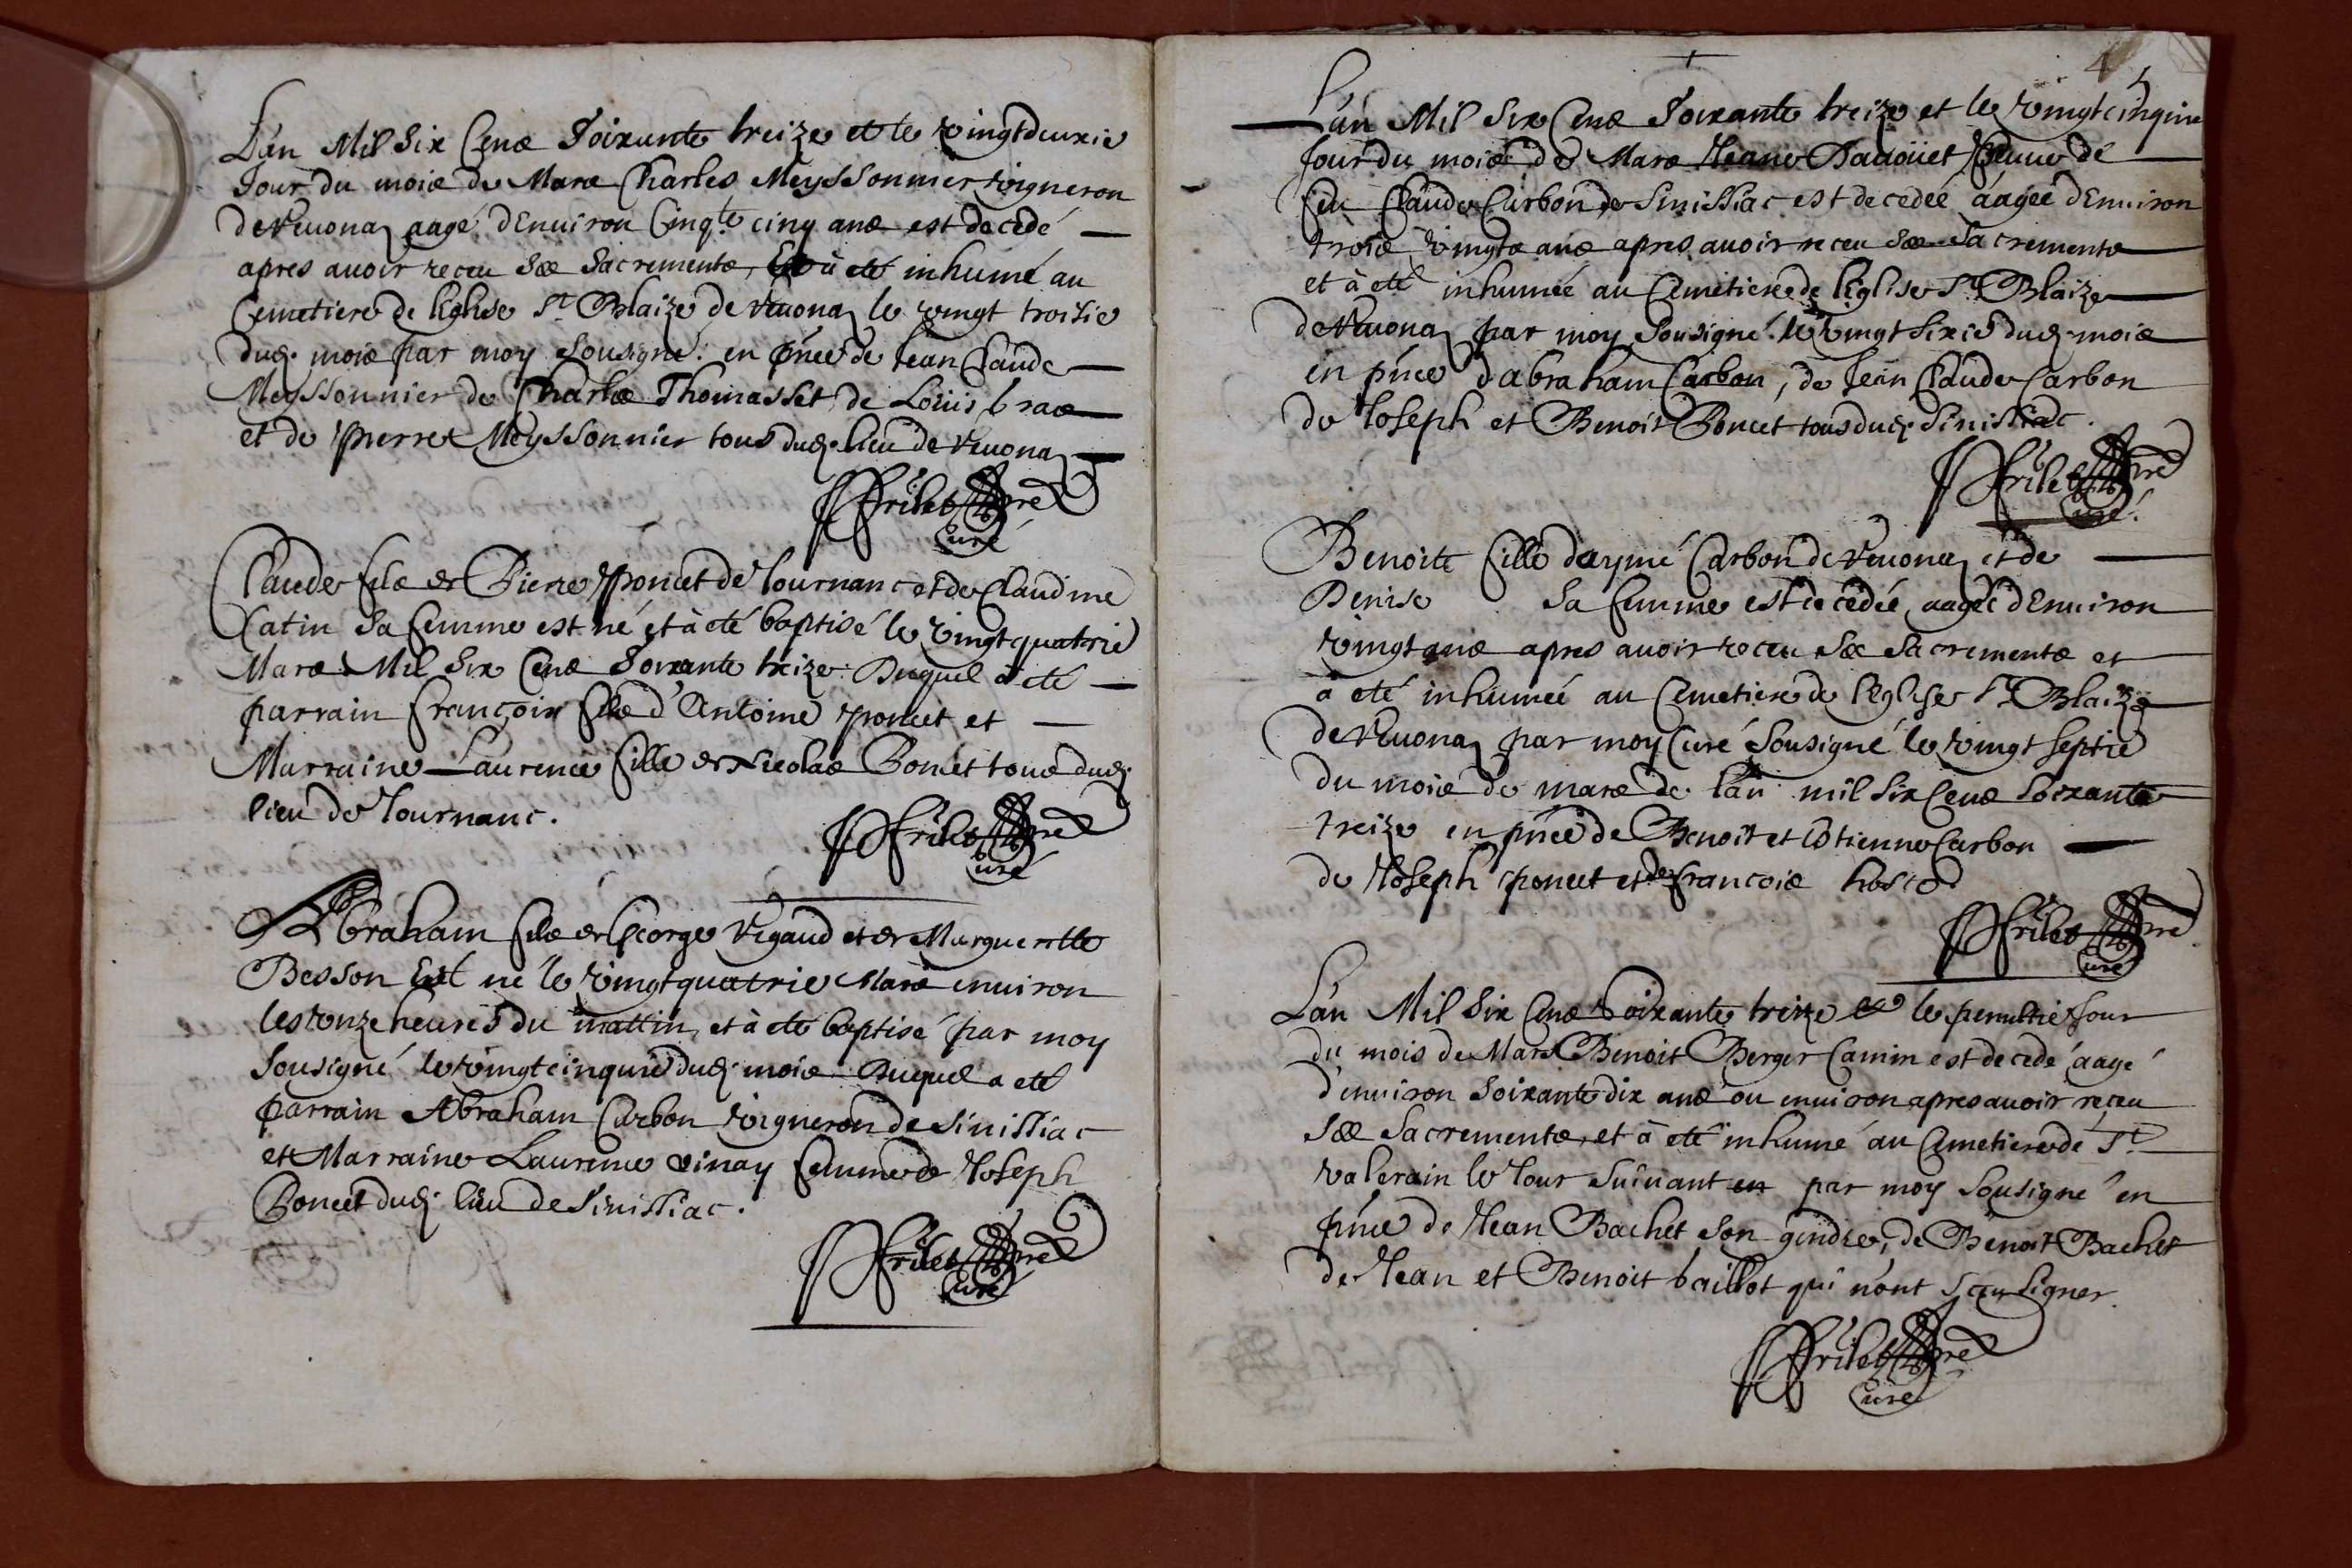 L'an Mil Six Cens Soixante treize et le vingtdeuxie
Jour du mois de Mars Charles Meyssonnier vigneron
de Veuona aagé d'Enuiron Cinqte cinq ans est decedé
apres auoir receu Ses Sacrements, Et à eté inhumé au
Cemetiere de l'Eglise St Blaize de Veuona le vingt troisie
dud. mois par moy Sousigné: en pñce de Jean Claude
Meyssonnier de Charles Thomasset, de Louis bras
et de Pierre Meyssonnier tous dud. lieu de Veuona
Frilet pre
Curé
Claude fils de Pierre Poncet de Tournanc et de Claudine
Catin Sa femme est né et à eté baptisé le vingtquatrie
Mars Mil Six Cens Soixante treize: Duquel a eté
parrain François fils d'Antoine Poncet et
Marraine Laurence fille de Nicolas Poncet tous dud.
lieu de Tournanc.
Frilet pre
Curé
Abraham fils de George Vigaud et de Marguerite
Besson Est né le vingtquatrie Mars enuiron
les onze heures du mattin, et à eté baptisé par moy
Sousigné le vingtcinquie dud. mois Duquel a eté
parrain Abraham Carbon vigneron de Sinissiac
et Marraine Laurence vinay femme de Joseph
Poncet dud. lieu de Sinissiac.
Frilet pre
Curé
L'an Mil Six Cens Soixante treize et le vingtcinquie
Jour du mois de Mars Jeane Veuue de
feu Claude Carbon de Sinissiac est decedée aagée d'Enuiron
trois vingts ans apres auoir receu Ses Sacrements
et à eté inhumée au Cemetiere de l'Eglise St Blaize
de Veuona par moy Sousigné le vingt Sixie dud. mois
en pñce d'abraham Carbon, de Jean Claude Carbon
de Joseph et Benoit Poncet tous dud. Sinissiac.
Frilet pre
Curé.
Benoite fille d'aymé Carbon de Veuona et de
Denise Sa femme est decedée, aagée d'Enuiron
vingt ans apres auoir receu Ses Sacrements et
a eté inhumée au Cemetiere de l'Eglise St Blaize
de Veuona par moy Curé Sousigné le vingt Septie
du mois de mars de l'an mil Six Cens Soixante
treize en pñce de Benoit et Etienne Carbon
de Joseph Poncet et de francois
Frilet pre
Curé
L'an Mil Six Cens Soixante treize et le penultie Jour
du mois de Mars Benoit Berger Camin est decedé aagé
d'enuiron Soixante dix ans ou enuiron apres auoir receu
Ses Sacrements, et à eté inhumé au Cemetiere de St
valerain le Jour Suiuant par moy Sousigné en
pñce de Jean Bachet Son gendre, de Benoit Bachet
de Jean et Benoit baillot qui n'ont Sceu Signer.
Frilet pre
Curé